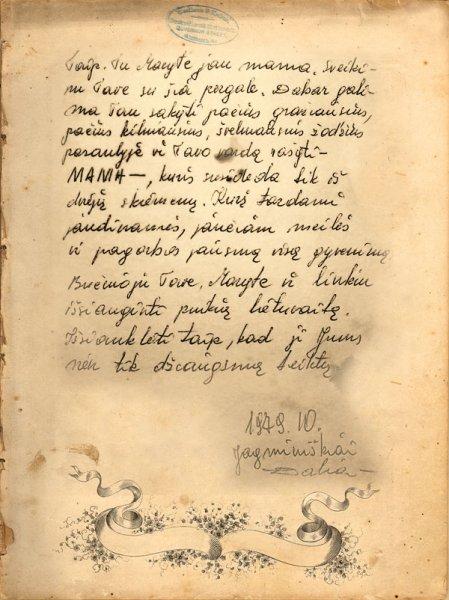 Taip. Tu Maryte jau mama. Sveiki-
nu Tave su šia pergale. Dabar gali-
ma Tau sakyti pačius gražiausius,
pačius kilniausius, švelniausius žodžius
pasaulyje ir Tavo vardą rašyti—
MAMA—, kuris susideda tik iš
dviejų skiemenų. Kurį tardami
jaudinamės, jaučiam meilės
ir pagarbos jausmą visą gyvenimą
Bučiuoju Tave, Maryte ir linkiu
išsiauginti puikią lietuvaitę.
Išsiauklėti taip, kad ji Jums
vien tik džiaugsmą teiktų
1979. IV.
Jagminiškiai